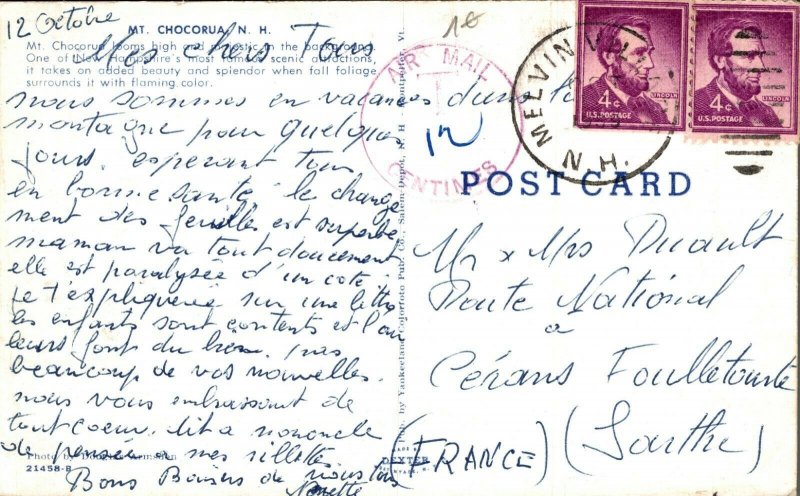 12 Octobre
MT. CHOCORUA, N. H.
Mt. Chocorua looms high and majestic in the background.
One of New Hampshire's most famous scenic attractions,
it takes on added beauty and splendor when fall foliage
surrounds it with flaming color.
Mes chers Tous
nous sommes en vacances dans la
montagne pour quelque
jours. esperant tous
en bonne santé. le change
ment des feuilles est superbe
maman va tout doucement
elle est paralysée d'un coté
je t'expliquerié sur une lettre
les enfants sont contents et l'on
leurs font du
beaucoup de vos nouvelles.
nous vous embrassont de
tout coeur. dit a
de penser a mes rillettes.
Bons Baisers de nous tous
Photo by
21458-B
Pub. by Yankeeland Colorfoto Pub. Co., Salem Depot, N. H. - Montpelier, Vt.
MADE BY
DEXTER
AIR MAIL
CENTIMES
MELVIN
N. H.
4¢
LINCOLN
U.S. POSTAGE
4¢
LINCOLN
U.S. POSTAGE
POST CARD
Mr x Mrs Duault
Route National
a
Cérans Foulletourte
(Sarthe)
(FRANCE)